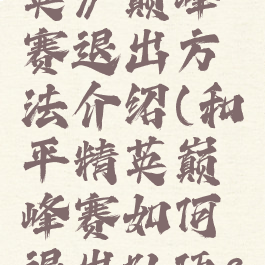 英》巅峰
赛退出方
法介绍(和
平精英巅
峰赛如何
退出队伍?